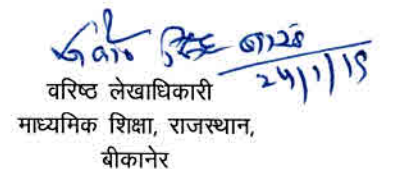 24/1/19
वरिष्ठ लेखाधिकारी
माध्यमिक शिक्षा, राजस्थान,
बीकानेर